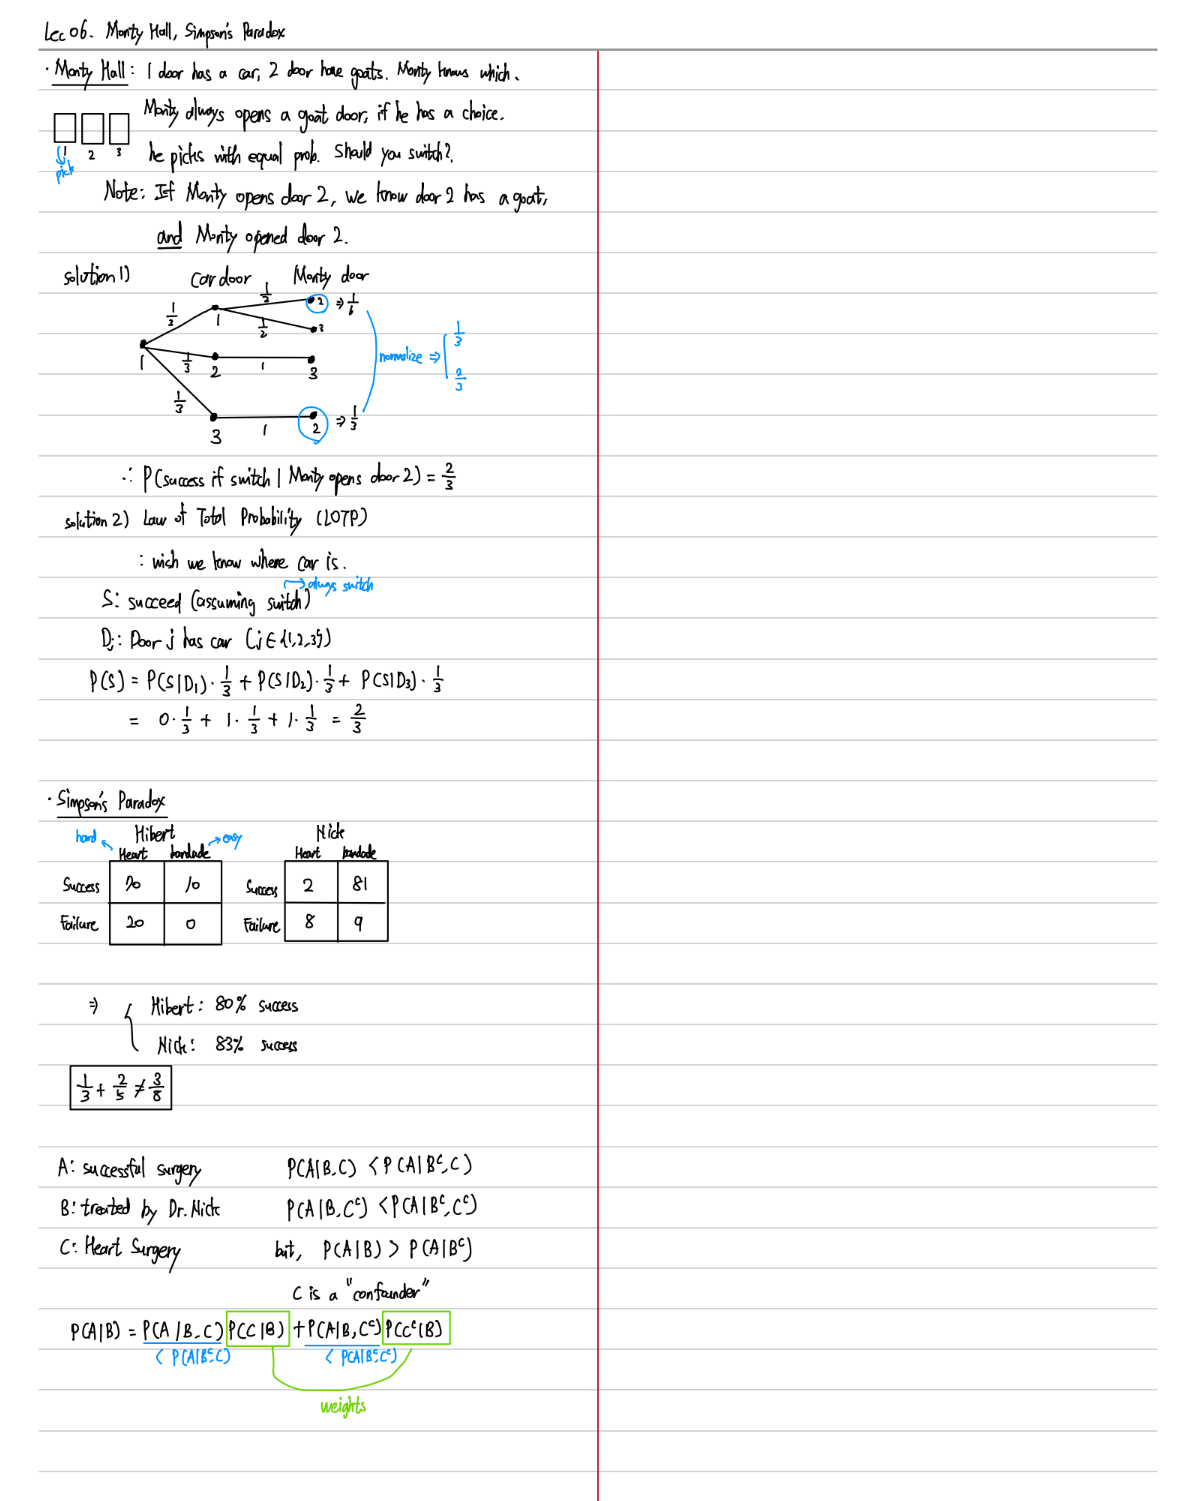 Lec 06. Monty Hall, Simpson's Paradox
· Monty Hall: 1 door has a car, 2 door have goats. Monty knows which.
Monty always opens a goat door, if he has a choice.
1 2 3
pick
he picks with equal prob. Should you switch?.
Note: If Monty opens door 2, we know door 2 has a goat,
and Monty opened door 2.
solution 1) Car door Monty door
1/3 1 1/2 2 ⇒ 1/6
1/2 3
1 1/3 2 1 3
1/3 3 1 2 ⇒ 1/3
normalize ⇒ { 1/3 2/3
∴ P(success if switch | Monty opens door 2) = 2/3
solution 2) Law of Total Probability (LOTP)
: wish we know where car is.
→ always switch
S: succeed (assuming switch)
Dj: Door j has car (j ∈ {1,2,3})
P(S) = P(S|D₁)·1/3 + P(S|D₂)·1/3 + P(S|D₃)·1/3
= 0·1/3 + 1·1/3 + 1·1/3 = 2/3
· Simpson's Paradox
Hibert Nick
hard Heart bandade → easy Heart bandade
Success 70 10 Success 2 81
Failure 20 0 Failure 8 9
⇒ { Hibert: 80% success
Nick: 83% success
1/3 + 2/5 ≠ 3/8
A: successful surgery P(A|B,C) < P(A|Bᶜ,C)
B: treated by Dr. Nick P(A|B,Cᶜ) < P(A|Bᶜ,Cᶜ)
C: Heart Surgery but, P(A|B) > P(A|Bᶜ)
C is a "confounder"
P(A|B) = P(A|B,C) P(C|B) + P(A|B,Cᶜ) P(Cᶜ|B)
< P(A|Bᶜ,C) < P(A|Bᶜ,Cᶜ)
weights